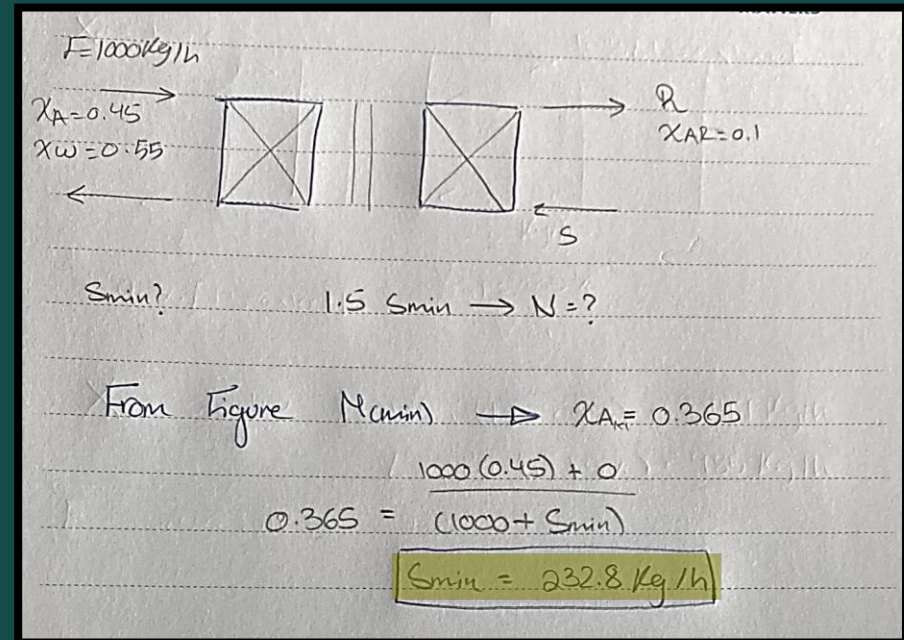 F=1000Kg/h
xA=0.45
xW=0.55
R
xAR=0.1
S
Smin?
1.5 Smin → N=?
From Figure M(min) → xAM= 0.365
0.365 = 1000(0.45) + 0 / (1000+ Smin)
Smin = 232.8 Kg/h